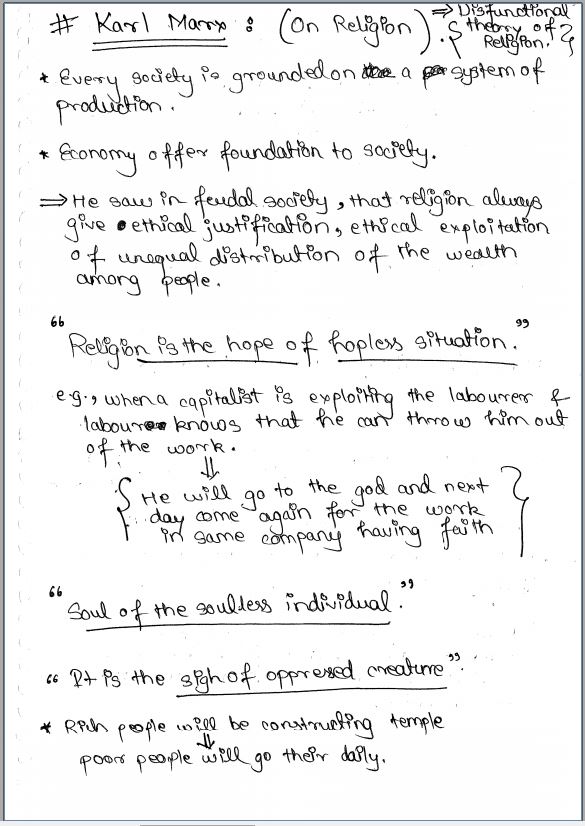 # Karl Marx : (On Religion). ⇒ Disfunctional
{ theory of
Religion. }
* Every society is grounded on a system of
production.
* Economy offer foundation to society.
⇒ He saw in feudal society, that religion always
give ethical justification, ethical exploitation
of unequal distribution of the wealth
among people.
"Religion is the hope of hopless situation."
e.g., when a capitalist is exploiting the labourer &
labourer knows that he can throw him out
of the work.
⇓
{ He will go to the god and next
day come again for the work
in same company having faith }
"Soul of the soulless individual."
"It is the sigh of oppressed creature".
* Rich people will be constructing temple
⇓
poor people will go their daily.